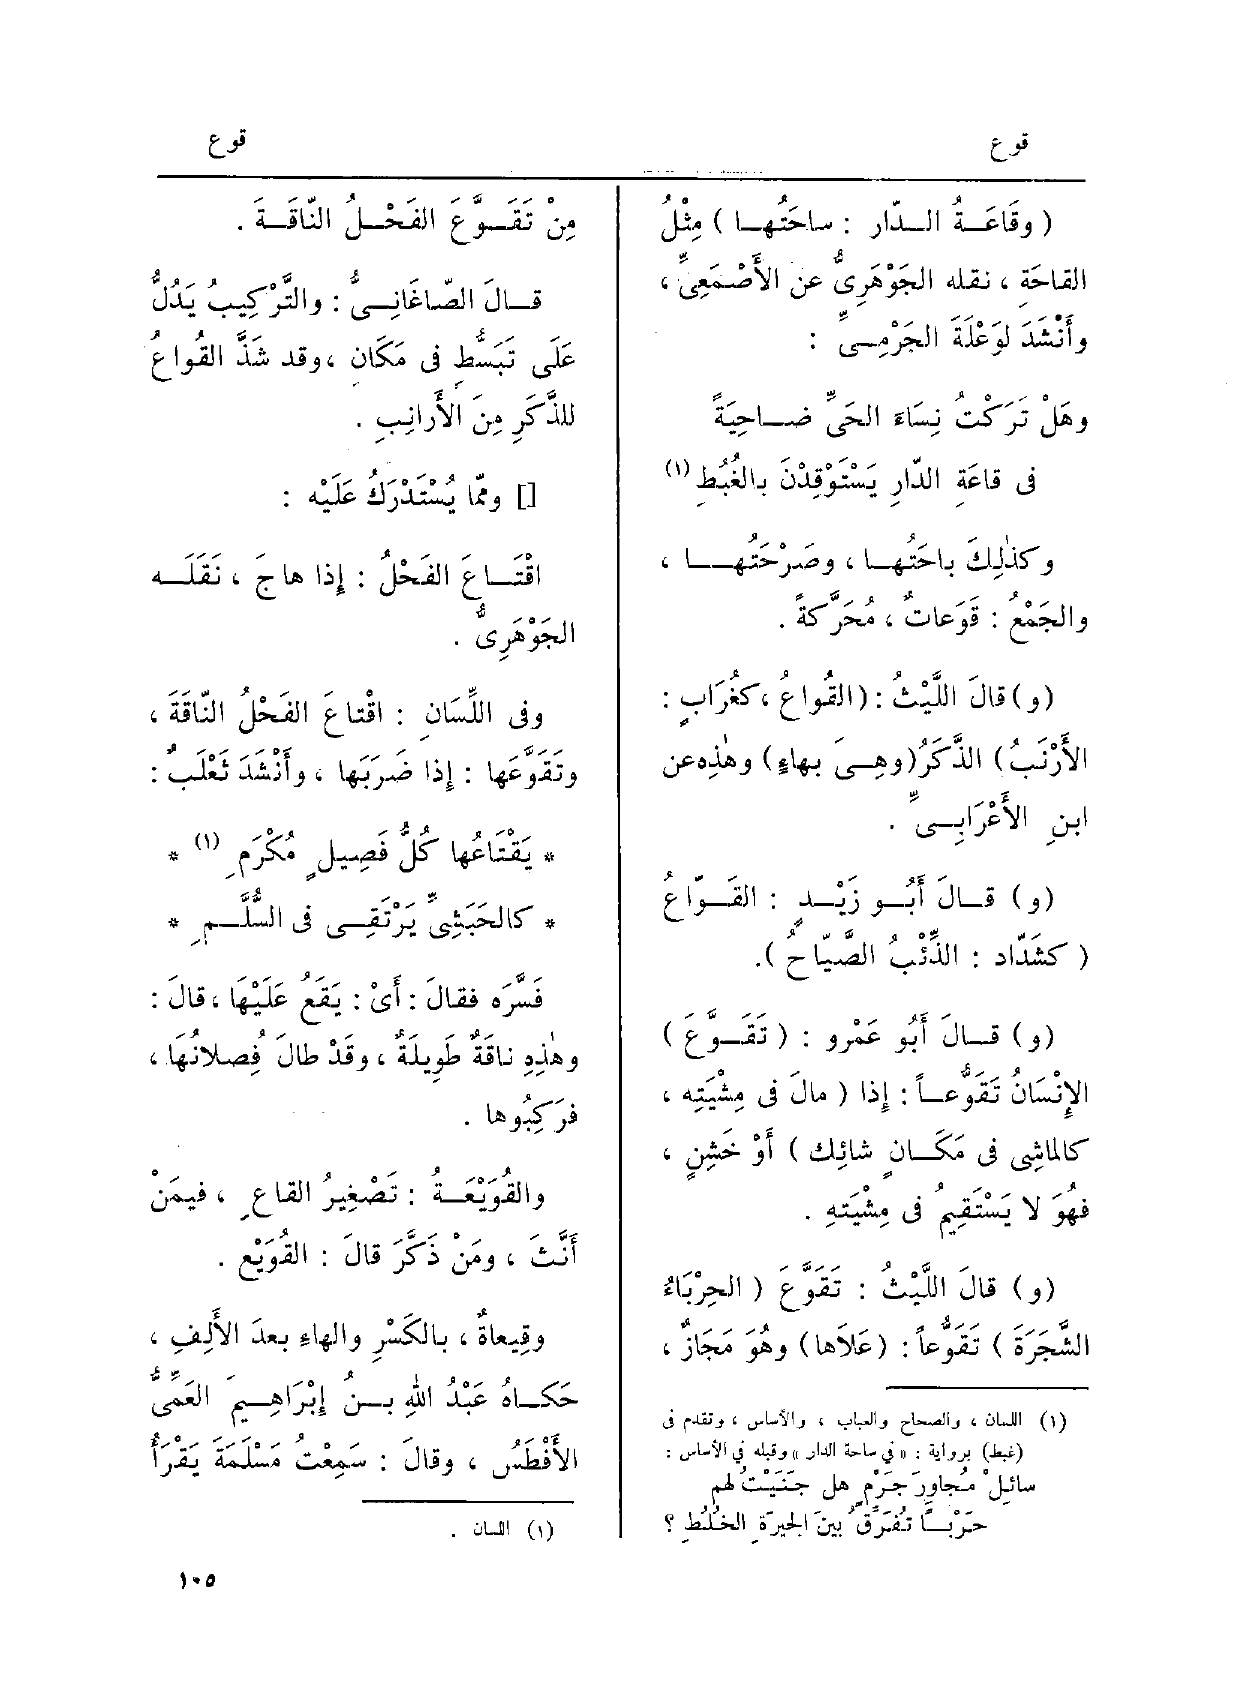 قوع
قوع
( وقَاعَـةُ الـدّار : ساحَتُهـا ) مِثْلُ
القاحَةِ ، نقله الجَوْهَرِىُّ عن الأَصْمَعِىِّ ،
وأَنْشَدَ لوَعْلَةَ الجَرْمِـىِّ :
وهَلْ تَرَكْتُ نِسَاءَ الحَىِّ ضـاحِيَةً
فى قاعَةِ الدّارِ يَسْتَوْقِدْنَ بالغُبُطِ (١)
وكذٰلِكَ باحَتُهـا ، وصَرْحَتُهـا ،
والجَمْعُ : قَوَعاتٌ ، مُحَرَّكةً .
(و) قالَ اللَّيْثُ : (القُواعُ ، كغُرَابٍ :
الأَرْنَبُ) الذَّكَرُ (وهِـىَ بهاءٍ) وهٰذِه عن
ابنِ الأَعْرَابِـىِّ .
(و) قـالَ أَبُـو زَيْـدٍ : القَـوّاعُ
( كشَدّاد : الذِّئْبُ الصَّيّاحُ ).
(و) قـالَ أَبُو عَمْرٍو : ( تَقَـوَّعَ )
الإِنْسَانُ تَقَوُّعـاً : إِذا ( مالَ فى مِشْيَتِه ،
كالماشِى فى مَكَـانٍ شائِك ) أَوْ خَشِنٍ ،
فهُوَ لا يَسْتَقِيمُ فى مِشْيَتِهِ .
(و) قالَ اللَّيْثُ : تَقَوَّعَ ( الحِرْبَاءُ
الشَّجَرَةَ ) تَقَوُّعاً : (عَلاَها) وهُوَ مَجَازٌ ،
(١) اللسان ، والصحاح والعباب ، والأساس ، وتقدم فى
(غبط) برواية : « فى ساحة الدار » وقبله فى الأساس :
سائِلْ مُجاوِرَ جَرْمٍ هل جَنَيْتُ لهم
حَرْبـًا تُفَرِّقُ بينَ الجِيرَةِ الخُلُطِ ؟
مِنْ تَقَـوَّعَ الفَحْـلُ النّاقَـةَ .
قـالَ الصّاغَانِـىُّ : والتَّرْكِيبُ يَدُلُّ
عَلَى تَبَسُّط فى مَكَان ، وقد شَذَّ القُواعُ
للذَّكَرِ مِنَ الأَرانِبِ .
[] وممّا يُسْتَدْرَكُ عَلَيْه :
اقْتَـاعَ الفَحْلُ : إِذا هاجَ ، نَقَلَـه
الجَوْهَرِىُّ .
وفى اللِّسَانِ : اقْتاعَ الفَحْلُ النّاقَةَ ،
وتَقَوَّعَها : إِذا ضَرَبَها ، وأَنْشَدَ ثَعْلَبٌ :
* يَقْتَاعُها كُلُّ فَصِيلٍ مُكْرَمِ (١) *
* كالحَبَشِىِّ يَرْتَقِـى فى السُّلَّـمِ *
فَسَّرَه فقالَ : أَىْ : يَقَعُ عَلَيْهَا ، قالَ :
وهٰذِهِ ناقَةٌ طَوِيلَةٌ ، وقَدْ طالَ فُصلانُهَا ،
فرَكِبُوها .
والقُوَيْعَـةُ : تَصْغِيرُ القاعِ ، فيمَنْ
أَنَّثَ ، ومَنْ ذَكَّرَ قالَ : القُوَيْع .
وقِيعاةٌ ، بالكَسْرِ والهاءِ بعدَ الأَلِفِ ،
حَكـاهُ عَبْدُ اللهِ بـنُ إِبْرَاهِـيمَ العَمِّىُّ
الأَفْطَسُ ، وقالَ : سَمِعْتُ مَسْلَمَةَ يَقْرَأُ
(١) اللسان .
١٠٥